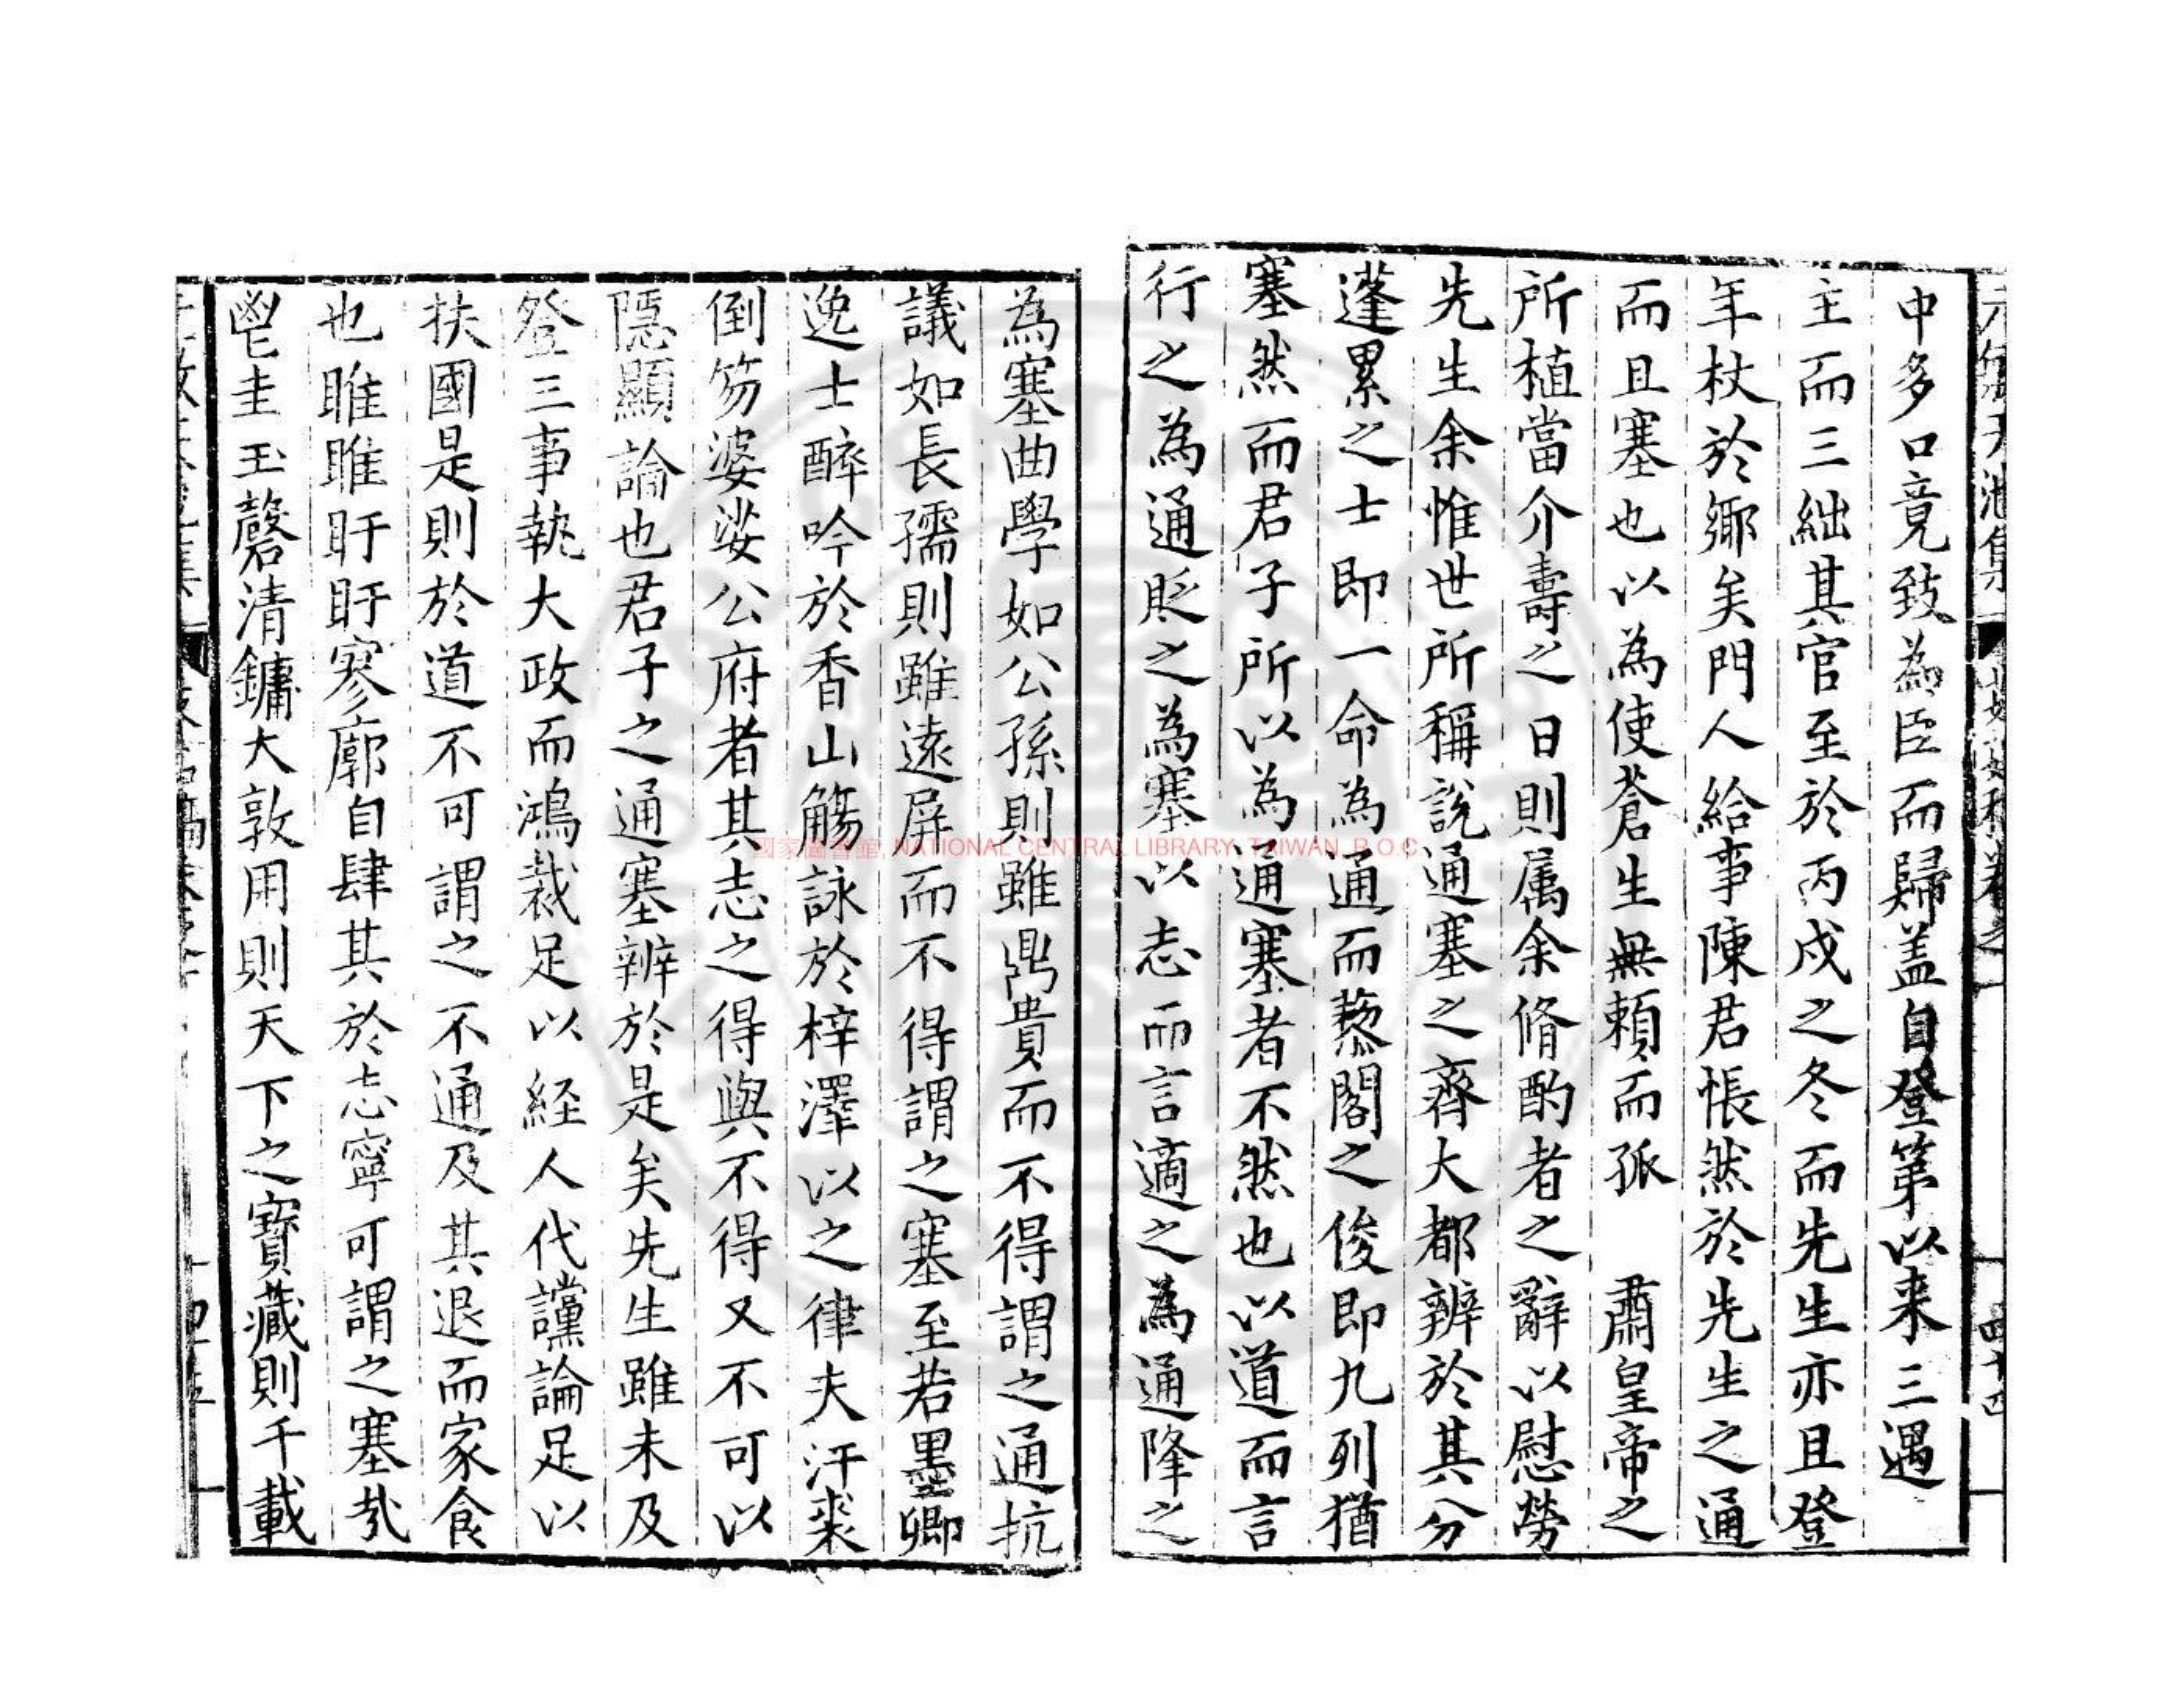 中多口竟致為臣而歸盖自登第以来三遇
主而三絀其官至於丙戌之冬而先生亦且登
年杖於鄉矣門人給事陳君悵然於先生之通
而且塞也以為使蒼生無賴而孤　肅皇帝之
所植當介壽之日則属余脩酌者之辭以慰勞
先生余惟世所稱說通塞之齊大都辨於其分
蓬累之士即一命為通而藜閣之俊即九列猶
塞然而君子所以為通塞者不然也以道而言
行之為通貶之為塞以志而言適之為通降之
為塞曲學如公孫則雖鼎貴而不得謂之通抗
議如長孺則雖遠屏而不得謂之塞至若墨卿
逸士醉吟於香山觴詠於梓澤以之律夫汗裘
倒笏婆娑公府者其志之得與不得又不可以
隱顯論也君子之通塞辨於是矣先生雖未及
登三事執大政而鴻裁足以経人代讜論足以
扶國是則於道不可謂之不通及其退而家食
也睢睢盱盱寥廓自肆其於志寧可謂之塞㢤
鬯圭玉磬清鏞大敦用則天下之寶藏則千載
國家圖書館, NATIONAL CENTRAL LIBRARY, TAIWAN, R.O.C.